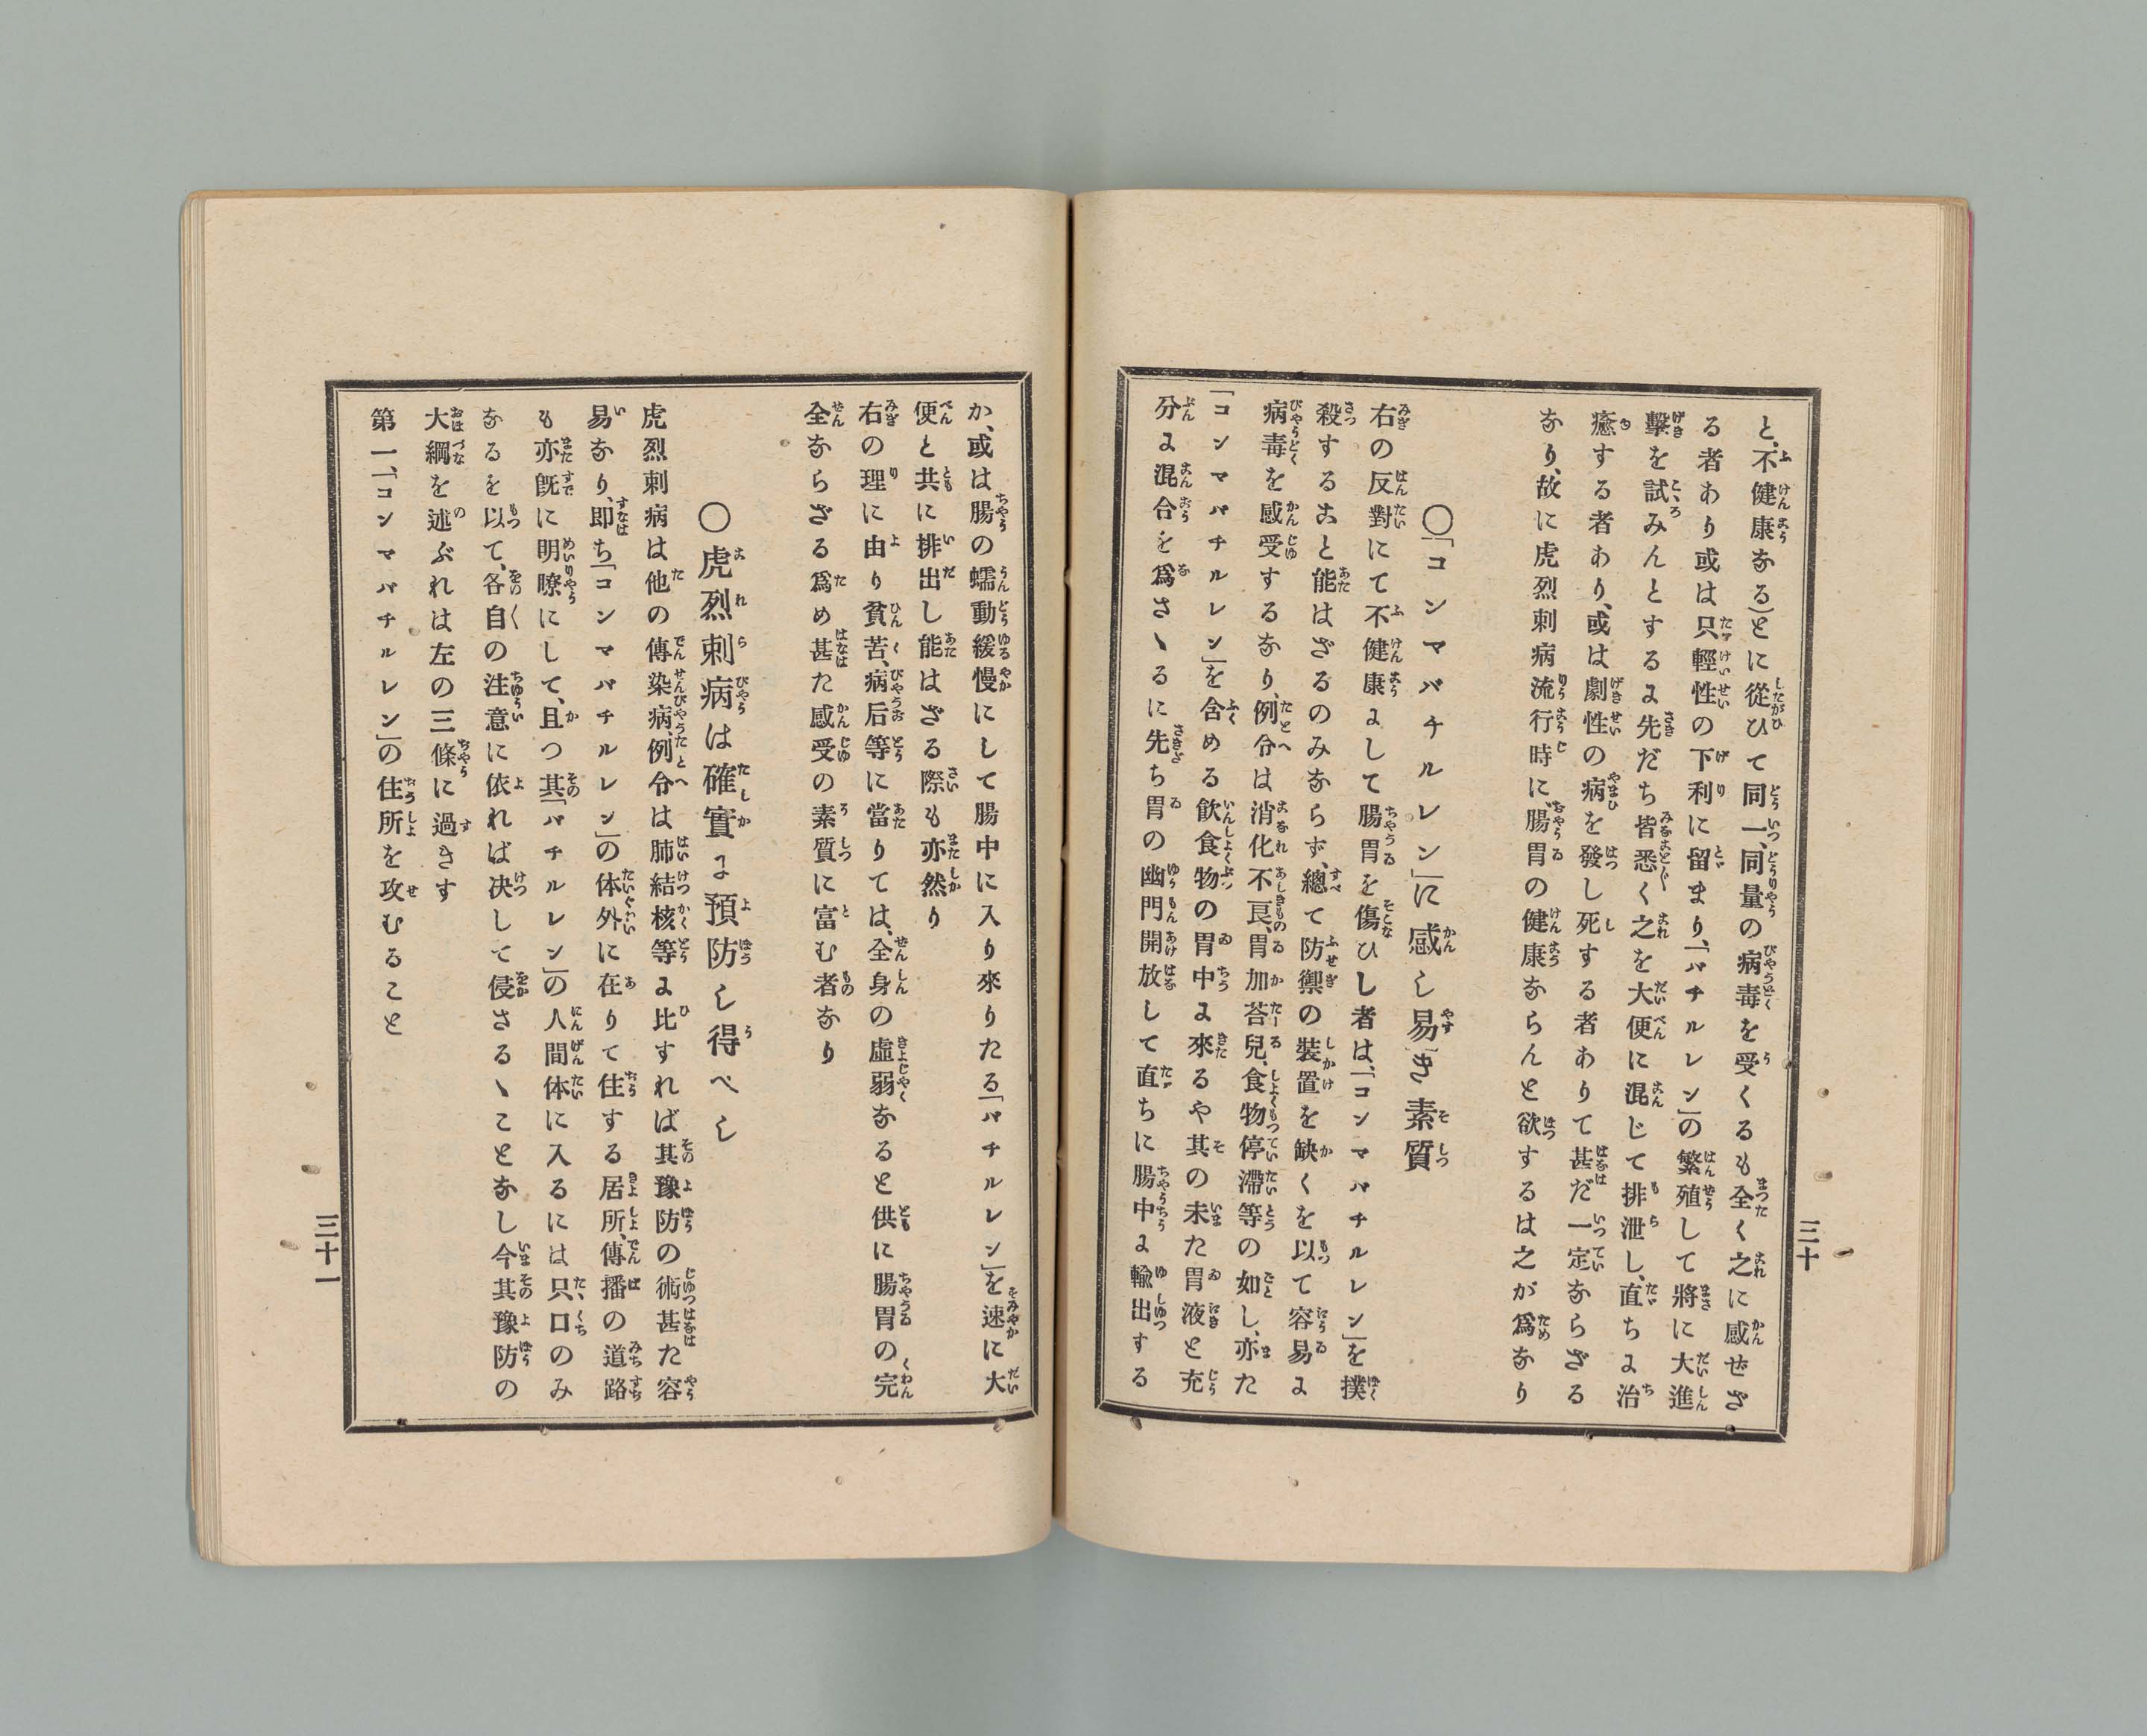 と、不健康なる)とに從ひて同一、同量の病毒を受くるも全く之に感せざ
る者あり或は只輕性の下利に留まり、「バチルレン」の繁殖して將に大進
擊を試みんとするに先だち皆悉く之を大便に混じて排泄し、直ちに治
癒する者あり、或は劇性の病を發し死する者ありて甚だ一定ならざる
なり、故に虎烈刺病流行時に腸胃の健康ならんと欲するは之が爲なり
〇「コンマバチルレン」に感し易き素質
右の反對にて不健康にして腸胃を傷ひし者は、「コンマバチルレン」を撲
殺すること能はざるのみならず、總て防禦の裝置を缺くを以て容易に
病毒を感受するなり、例令は消化不良、胃加荅兒、食物停滯等の如し、亦た
「コンマバチルレン」を含める飮食物の胃中に來るや其の未た胃液と充
分に混合を爲さゝるに先ち胃の幽門開放して直ちに腸中に輸出する
三十
か、或は腸の蠕動緩慢にして腸中に入り來りたる「バチルレン」を速に大
便と共に排出し能はざる際も亦然り
右の理に由り貧苦、病后等に當りては、全身の虛弱なると供に腸胃の完
全ならざる爲め甚た感受の素質に富む者なり
〇虎烈刺病は確實に預防し得べし
虎烈刺病は他の傳染病、例令は肺結核等に比すれば其豫防の術甚た容
易なり、即ち「コンマバチルレン」の体外に在りて住する居所、傳播の道路
も亦旣に明瞭にして、且つ其「バチルレン」の人間体に入るには只口のみ
なるを以て、各自の注意に依れば決して侵さるゝことなし今其豫防の
大綱を述ぶれは左の三條に過きす
第一、「コンマバチルレン」の住所を攻むること
三十一